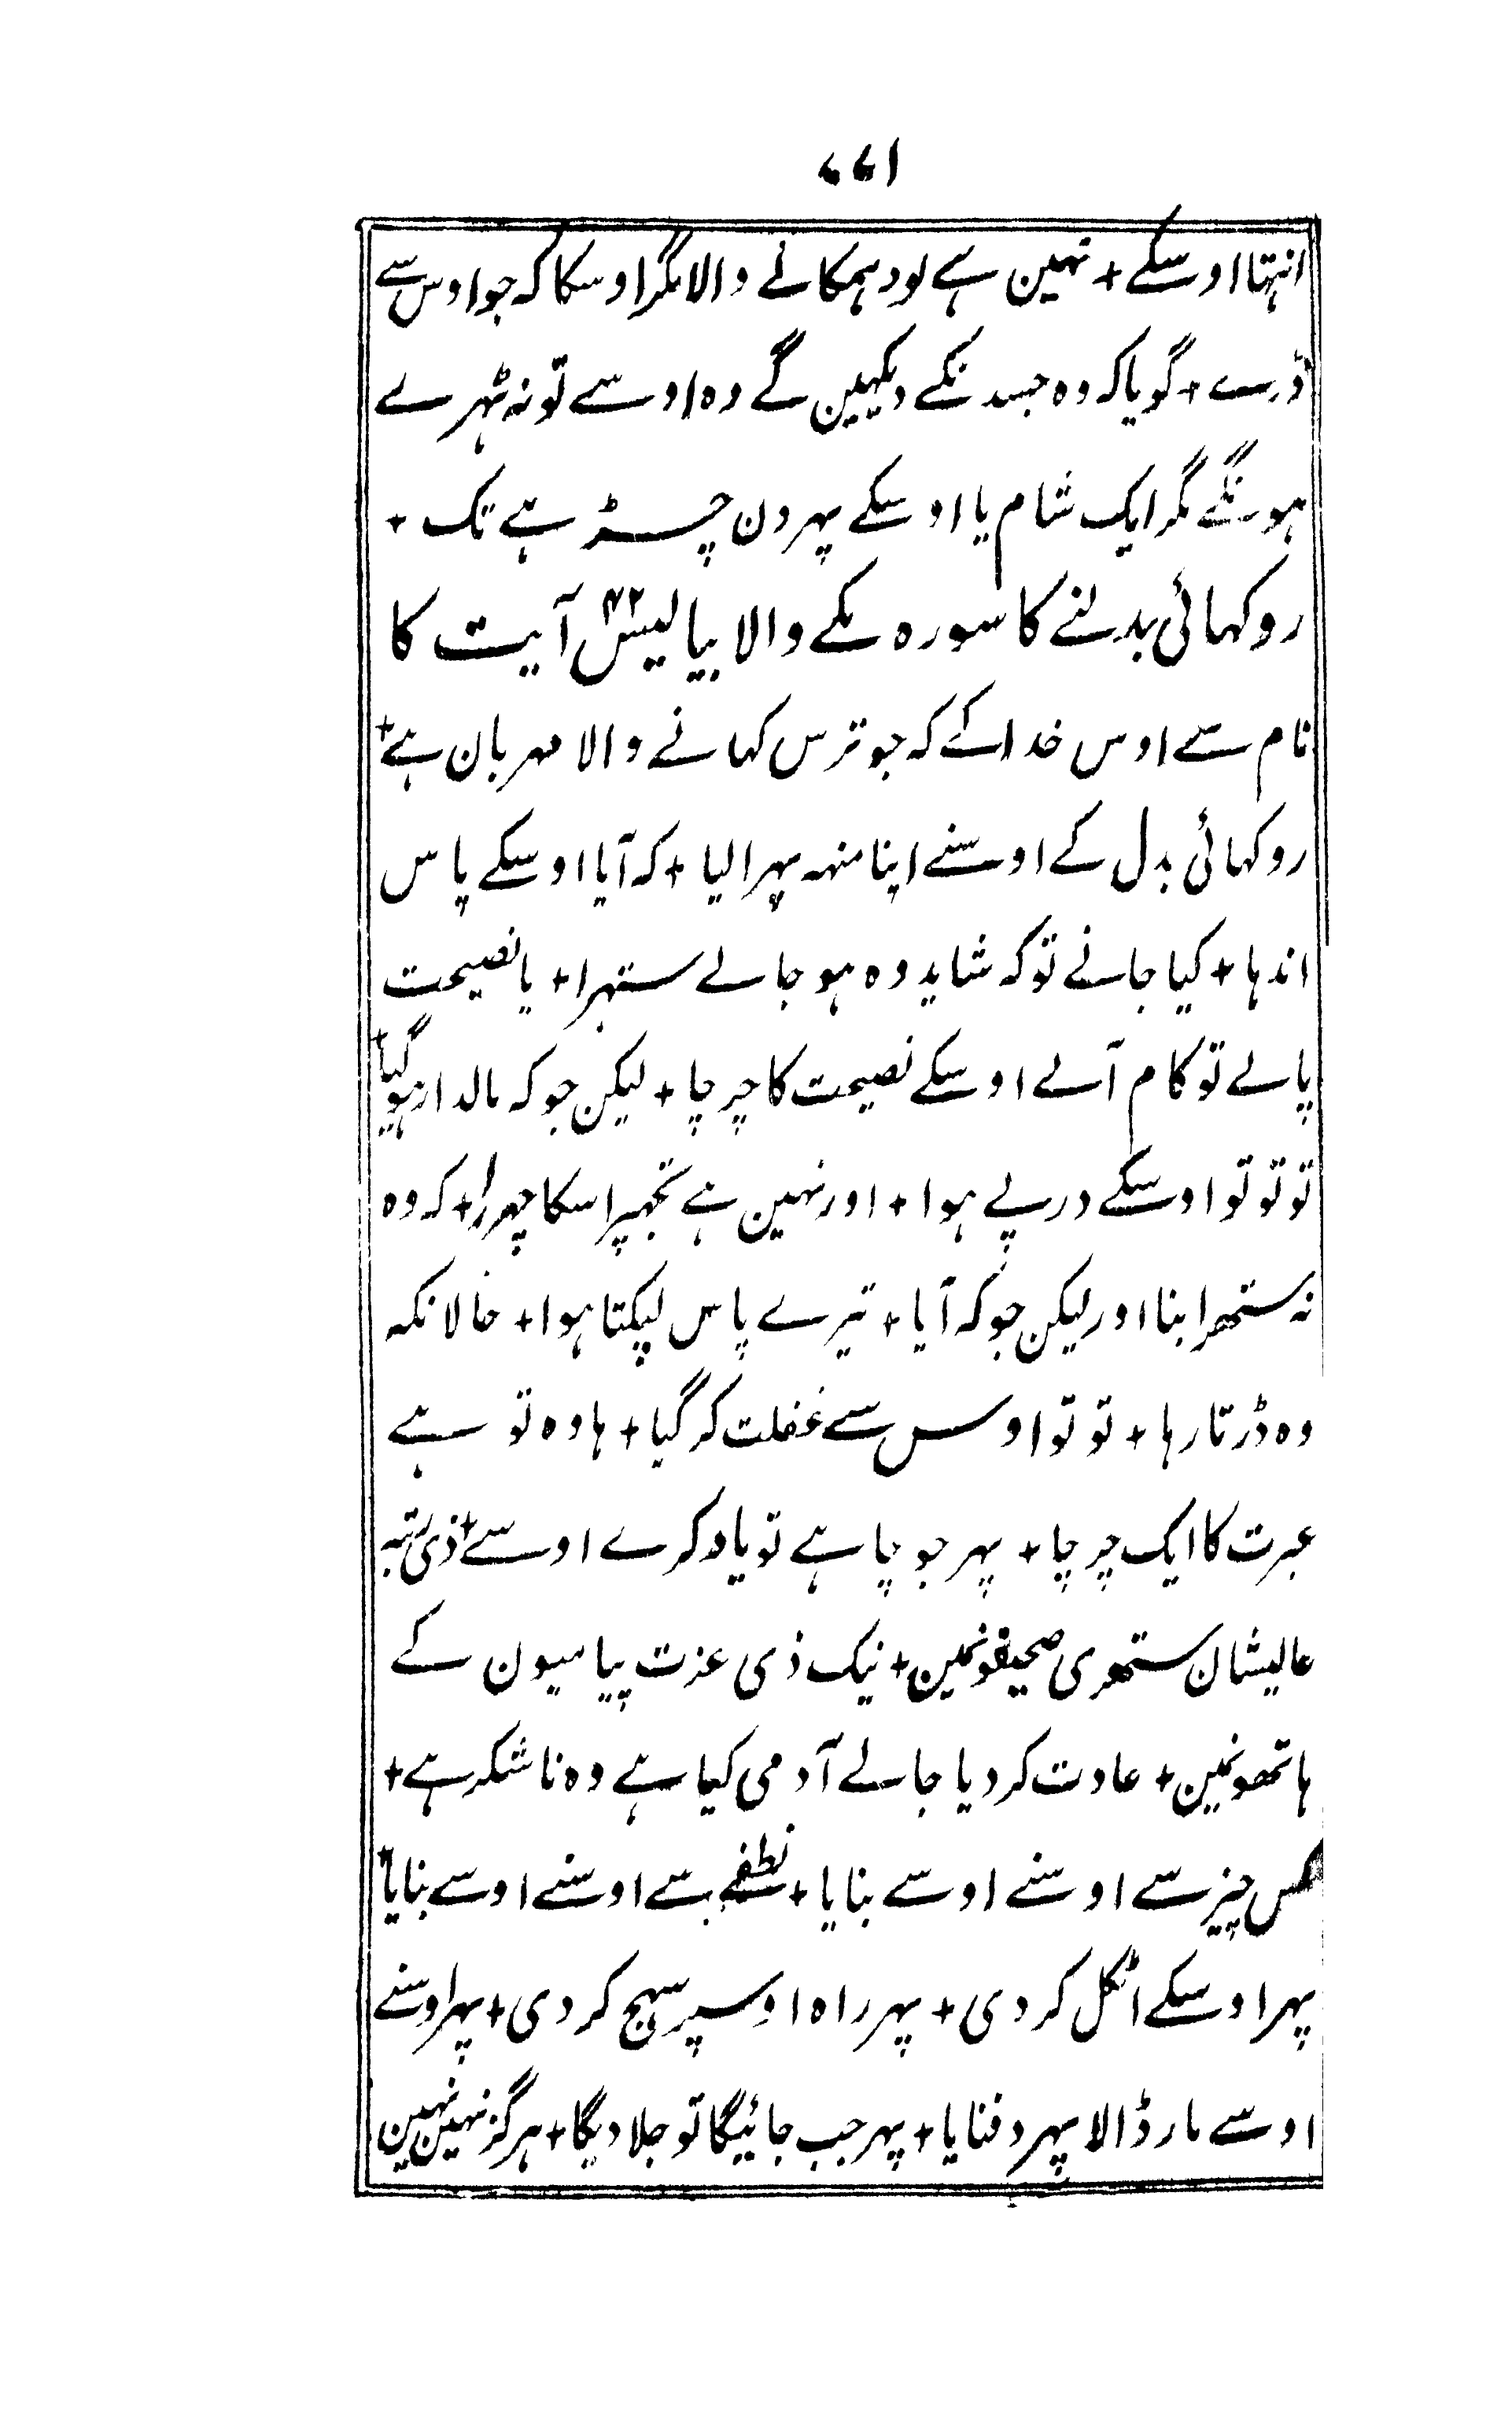 ۷۷۱
انتہا اوسکے + نہین ہے تو دہمکانے والا مگر اوسکا کہ جو اوس سے
ڈرے + گویا کہ وہ جسدنکے دیکھین گے وہ اوسے تو نہ ٹہرے
ہونگے مگر ایک شام یا اوسکے پہر دن چڑہے تک +
روکہائی بدلنے کا سورہ مکے والا بیالیس ۴۲ آیت کا
نام سے اوس خدا کے کہ جو ترس کہانے والا مہربان ہے +
روکہائی بدل کے اوسنے اپنا منہہ پہرا لیا + کہ آیا اوسکے پاس
اندہا + کیا جانے تو کہ شاید وہ ہو جالے ستہرا + یا نصیحت
پالے تو کام آلے اوسکے نصیحت کا چرچا + لیکن جو کہ مالدار ہوگیا +
تو تو تو اوسکے درپے ہوا + اور نہین ہے تجہپر اسکا چہرا + کہ وہ
نہ ستھرا بنا اور لیکن جو کہ آیا + تیرے پاس لپکتا ہوا + حالانکہ
وہ ڈرتا رہا + تو تو اوس سے غفلت کر گیا + ہا وہ تو ہے
عبرت کا ایک چرچا + پہر جو چاہے تو یاد کرے اوسے + ذی رتبہ
عالیشان ستھری صحیفونمین + نیک ذی عزت پیامیون کے
ہاتھونمین + عادت کر دیا جالے آدمی کیا ہے وہ ناشکر ہے +
کس چیز سے اوسنے اوسے بنایا + نطفے سے اوسنے اوسے بنایا +
پہر اوسکے اٹکل کر دی + پہر راہ اوسپر سہج کر دی + پہر اوسنے
اوسے مار ڈالا پہر دفنایا + پہر جب جائیگا تو جلا دیگا + ہرگز نہین نہین